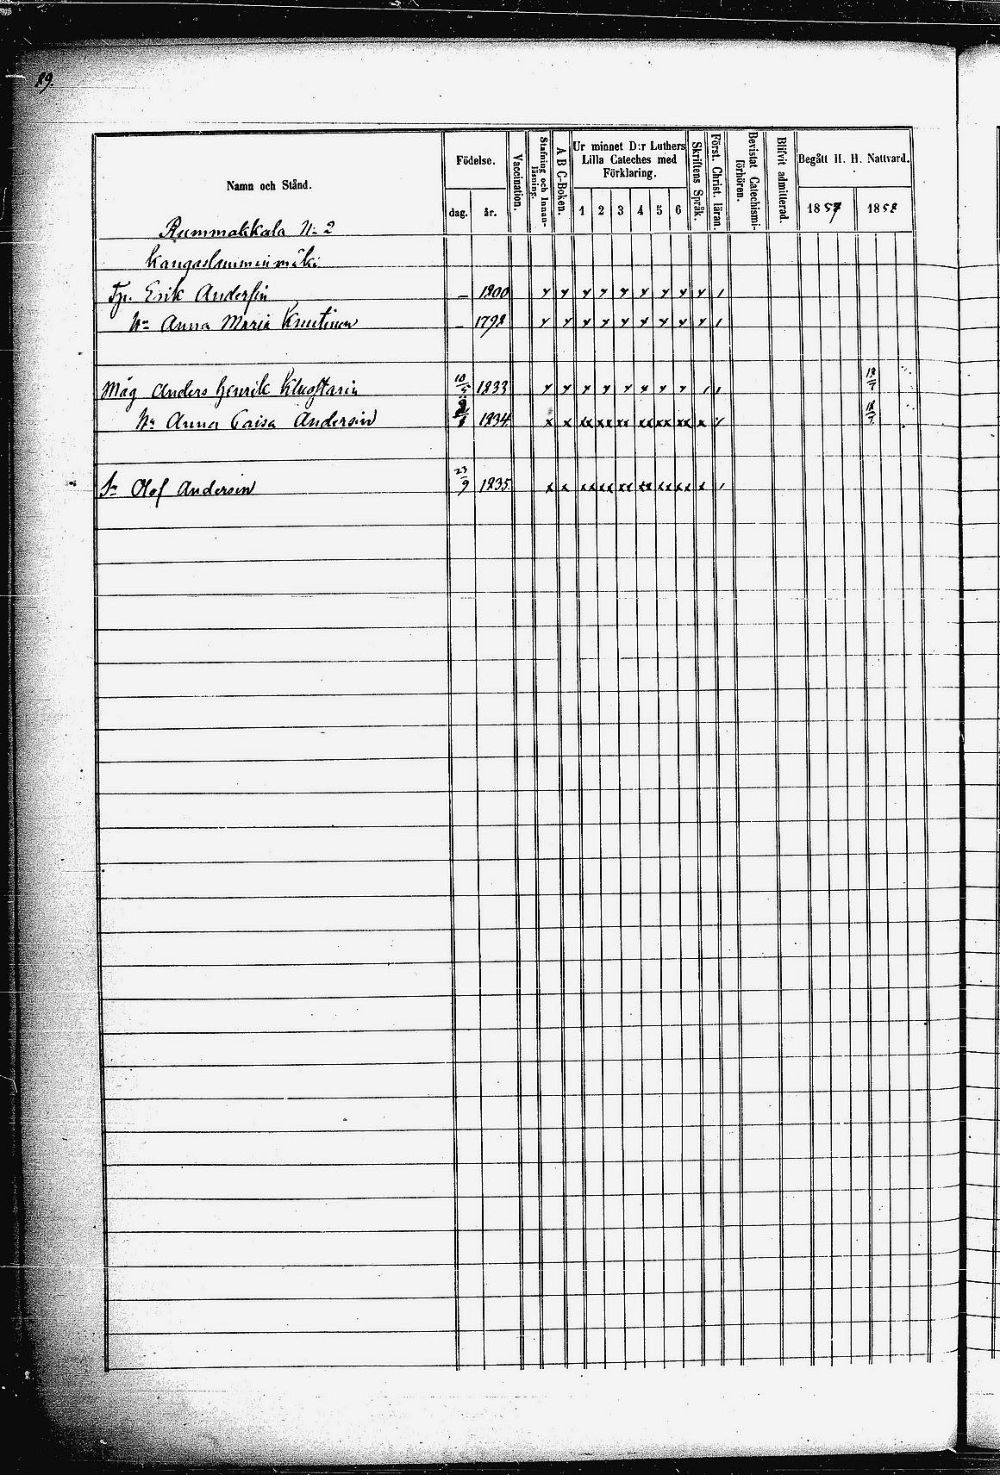 89.
Namn och Stånd.
Födelse.
dag. år.
Vaccination.
Stafning och Innan-läsning.
A B C-Boken.
Ur minnet D:r Luthers
Lilla Cateches med
Förklaring.
1 2 3 4 5 6
Skriftens Språk.
Först. Christ. läran.
Bevistat Catechismi-förhören.
Blifvit admitterad.
Begått H. H. Nattvard.
1857 1858
Rummakkala N:2
Kangaslamminmäki
Erik Andersin – 1800 x x x x x x x x x /
Anna Maria Knutinen – 1792 x x x x x x x x x /
Måg Anders Henrik 10/5 1833 x x x x x x x x / /
Anna Caisa Andersin 1834 x x xx xx xx xx xx xx x
Olof Andersin 23/9 1835 x x xx xx xx xx xx xx x /